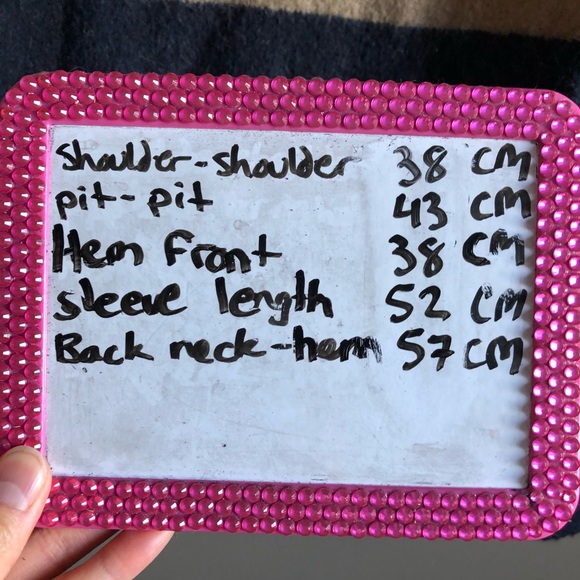 shoulder-shoulder 38 cm
pit-pit 43 cm
Hem front 38 cm
sleeve length 52 cm
Back neck-hem 57 cm